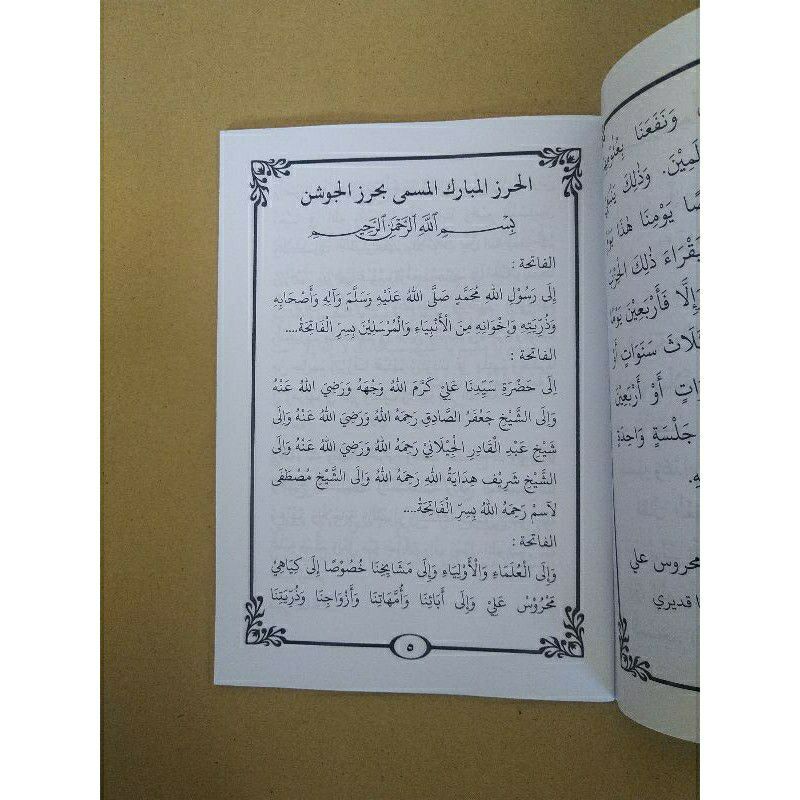 الحرز المبارك المسمى بحرز الجوشن
بِسْمِ ٱللَّهِ ٱلرَّحْمَٰنِ ٱلرَّحِيمِ
الفاتحة :
إِلَى رَسُوْلِ اللهِ مُحَمَّدٍ صَلَّى اللهُ عَلَيْهِ وَسَلَّمَ وَآلِهِ وَأَصْحَابِهِ
وَذُرِّيَتِهِ وَإِخْوَانِهِ مِنَ الْأَنْبِيَاءِ وَالْمُرْسَلِيْنَ بِسِرِ الْفَاتِحَةُ....
الفاتحة :
اِلَى حَضْرَةِ سَيِّدِنَا عَلِيْ كَرَّمَ اللهُ وَجْهَهُ وَرَضِيَ اللهُ عَنْهُ
وَاِلَى الشَّيْخِ جَعْفَرْ الصَّادِقِ رَحِمَهُ اللهُ وَرَضِيَ اللهُ عَنْهُ وَاِلَى
شَيْخِ عَبْدِ الْقَادِرِ الْجَيْلَانِيْ رَحِمَهُ اللهُ وَرَضِيَ اللهُ عَنْهُ وَاِلَى
الشَّيْخِ شَرِيْف هِدَايَةُ اللهِ رَحِمَهُ اللهُ وَاِلَى الشَّيْخِ مُصْطَفَى
لَاسَمْ رَحِمَهُ اللهُ بِسِرِّ الْفَاتِحَةُ....
الفاتحة :
وَاِلَى الْعُلَمَاءِ وَالْأَوْلِيَاءِ وَاِلَى مَشَايِخِنَا خُصُوْصًا اِلَى كِيَاهِيْ
مَحْرُوْسْ عَلِيْ وَاِلَى أَبَائِنَا وَأُمَّهَاتِنَا وَأَزْوَاجِنَا وَذُرِّيَتِنَا
٥
وَنَفَعَنَا
وَذٰلِكَ
يَوْمِنَا هٰذَا
ذٰلِكَ
وَإِلَّا فَأَرْبَعِيْنَ
سَنَوَاتٍ
أَوْ أَرْبَعِيْنَ
جَلْسَةٍ وَاحِدَةٍ
محروس علي
قديري